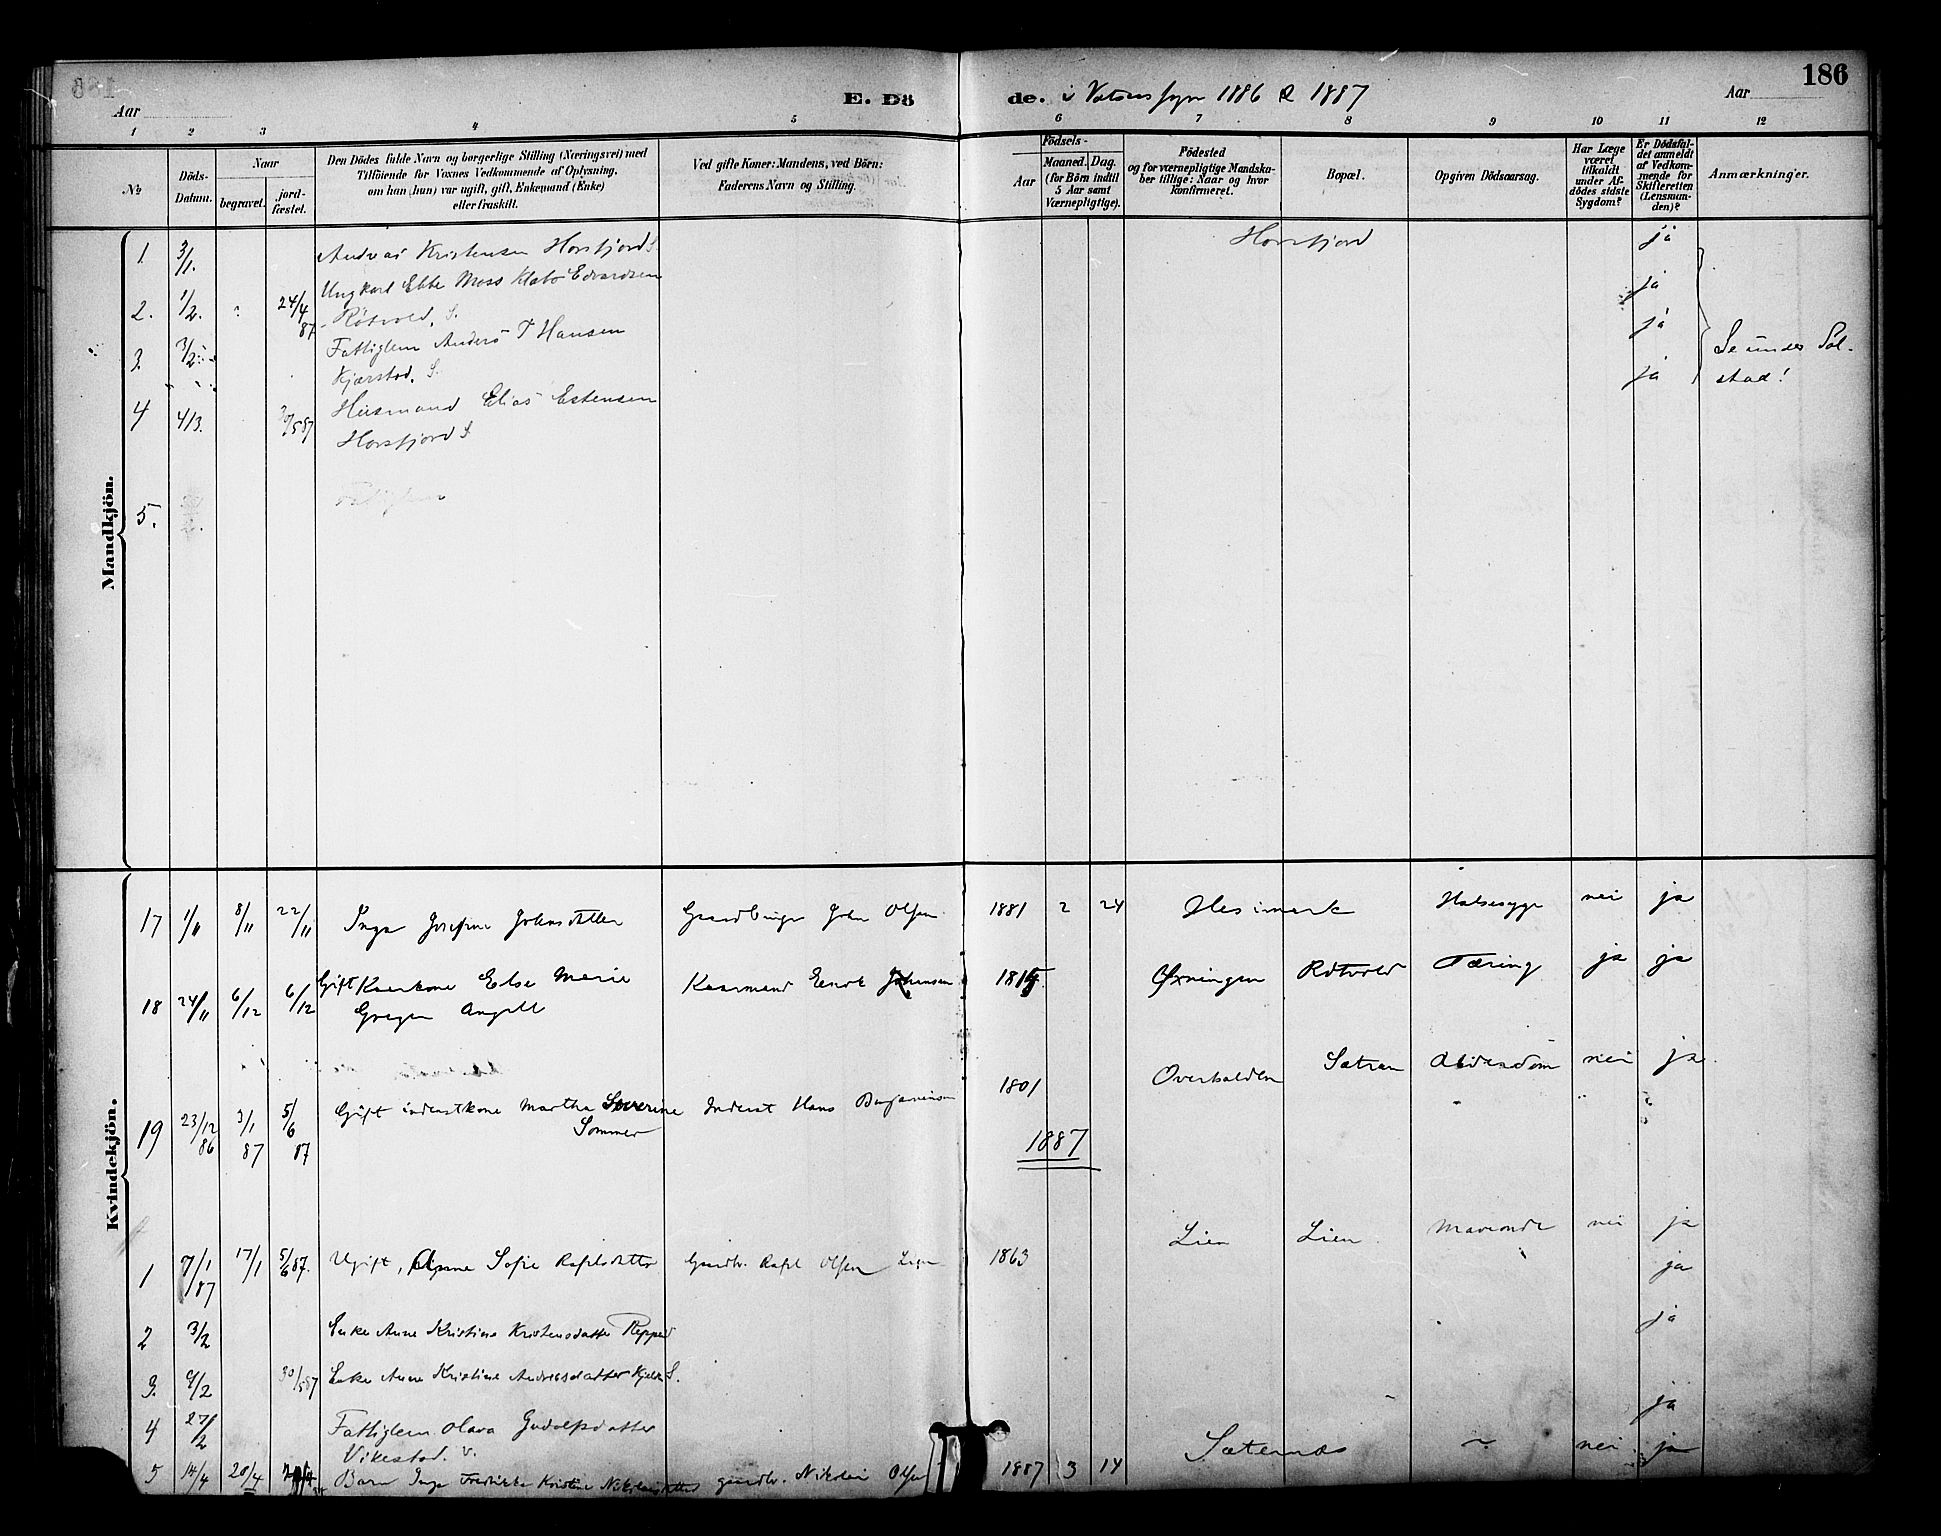 186
Aar
E. Dö
de. i Vatnes sogn 1886 & 1887
Aar
1 2 3 4 5 6 7 8 9 10 11 12
No
Döds-Datum.
Naar
begravet.
jord-fæstet.
Den Dödes fulde Navn og borgerlige Stilling (Næringsvei) med
Tilföiende for Voxnes Vedkommende af Oplysning,
om han (hun) var ugift, gift, Enkemand (Enke)
eller fraskilt.
Ved gifte Koner: Mandens, ved Börn:
Faderens Navn og Stilling.
Födsels-
Aar
Maaned. Dag.
(for Börn indtil
5 Aar samt
Værnepligtige).
Födested
og for værnepligtige Mandska-
ber tillige: Naar og hvor
konfirmeret.
Bopæl.
Opgiven Dödsaarsag.
Har Læge
været
tilkaldt
under Af-
dödes sidste
Sygdom?
Er Dödsfal-
det anmeldt
af Vedkom-
mende for
Skifteretten
(Lensman-
den)?
Anmærkninger.
Mandkjön.
1. 3/1. Andreas Kristensen Horsfjord S. Horsfjord ja
Ungkarl Ebbe Moss Klabo Edvardsen ja
2. 1/2. 24/4 87 Rötvold, S.
3. 3/2 Fattiglem Anders P Hansen ja
Kjærstad. S.
4 4/3. 30/5 87 Husmand Elias Estensen ja
Horsfjord S
Se under Söl-
stad!
5. Fattiglem
Kvindekjön.
17 1/11 8/11 22/11 Inga Josefine Johnsdatter Gaardbruger John Olsen 1881 2 24 Hesimark Halsesyge nei ja
18 24/11 6/12 6/12 Gift Kaarkone Else Marie Kaarmand Johansen Øxningen Rötvold Tæring ja ja
Angell
19 23/12 86 3/1 87 5/6 87 Gift inderstkone Martha Severine Inderst Hans Benjaminsen 1801 Overhalden Sætran Alderdom nei ja
Sommer
1887
1 7/1 87 17/1 5/6 87. Ugift, Sofie Rafelsdatter Gaardbr. Rafel Olsen Lien 1863 Lien Lien nei ja
ja
2 3/2 Enke Anne Kristine Kristensdatter ja
3. 9/2 30/5 87 Enke Anne Kristine Andreasdatter S.
4 27/2 Fattiglem Olava Gudolfsdatter ja
Vikestad. V.
5 14/4 20/4 Barn Inga Fredrikke Kristine Nikolaisdatter gaardbr. Nikolai Olsen 1887 3 14 Sæternes ~ nei ja